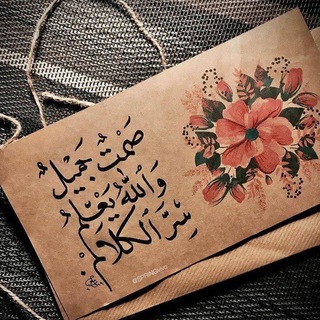 صَمْتٌ جَمِيْلٌ
وَاللّٰهُ يَعْلَمُ
سِرَّ الْكَلَامْ